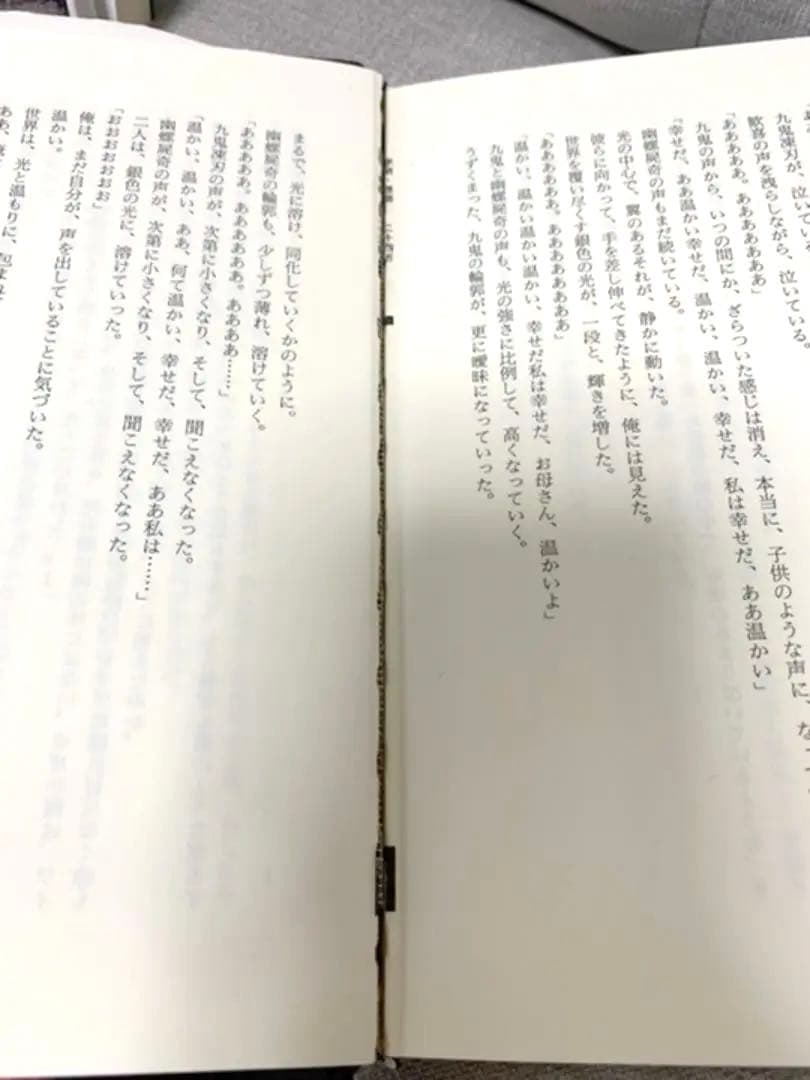 九鬼凍刃が、泣いていた。
歓喜の声を洩らしながら、泣いている。
「あああああ。ああああああ」
九鬼の声から、いつの間にか、ざらついた感じは消え、本当に、子供のような声に、な
「幸せだ、ああ温かい幸せだ、温かい、温かい、幸せだ、私は幸せだ、ああ温かい」
幽螺屍奇の声もまだ続いている。
光の中心で、翼のあるそれが、静かに動いた。
彼らに向かって、手を差し伸べてきたように、俺には見えた。
世界を覆い尽くす銀色の光が、一段と、輝きを増した。
「ああああああ。ああああああああ」
「温かい、温かい温かい温かい、幸せだ私は幸せだ、お母さん、温かいよ」
九鬼と幽螺屍奇の声も、光の強さに比例して、高くなっていく。
うずくまった、九鬼の輪郭が、更に曖昧になっていった。
まるで、光に溶け、同化していくかのように。
幽螺屍奇の輪郭も、少しずつ薄れ、溶けていく。
「あああああ。ああああああ。ああああ……」
九鬼凍刃の声が、次第に小さくなり、そして、聞こえなくなった。
「温かい、温かい、ああ、何て温かい、幸せだ、幸せだ、ああ私は……」
幽螺屍奇の声が、次第に小さくなり、そして、聞こえなくなった。
二人は、銀色の光に、溶けていった。
「おおおおおおお」
俺は、まだ自分が、声を出していることに気づいた。
温かい。
世界は、光と温もりに、包まれ
ああ、